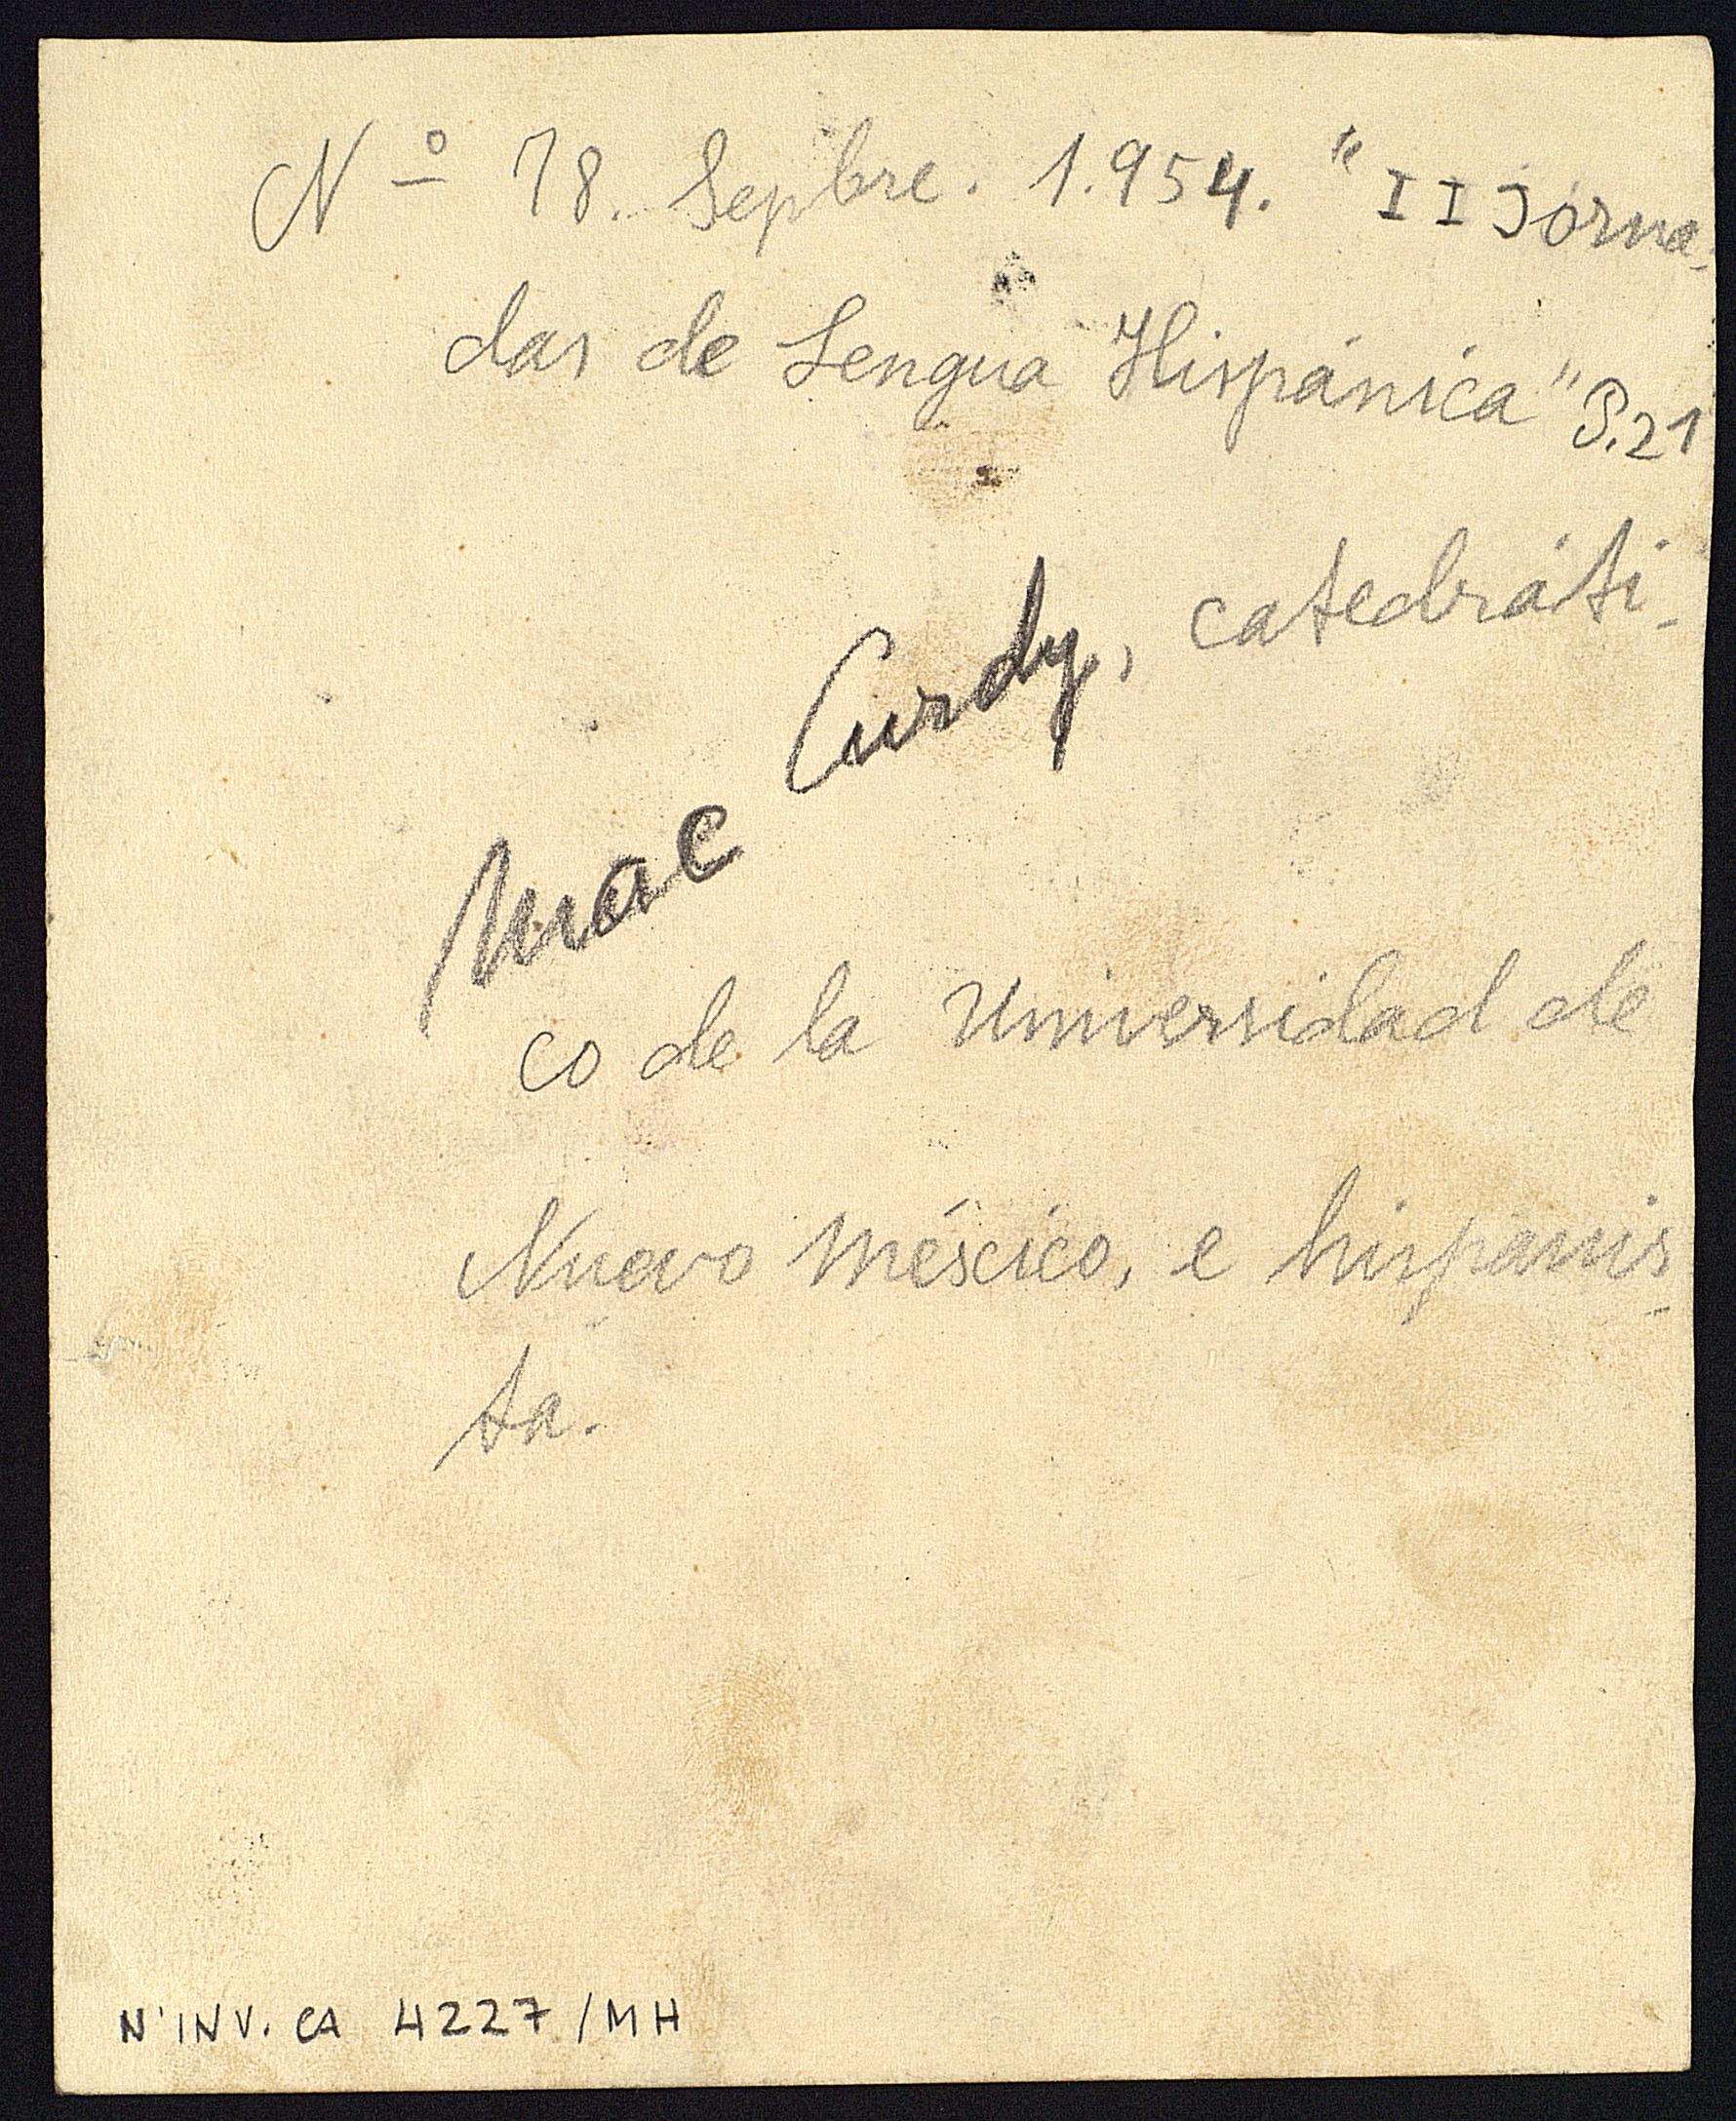 Nº 78. Sepbre. 1.954. "II Jorna-
das de Lengua Hispánica" P.21
Mac Curdy, catedráti-
co de la Universidad de
Nuevo México, e hispanis-
ta.
N'INV. CA 4227/MH